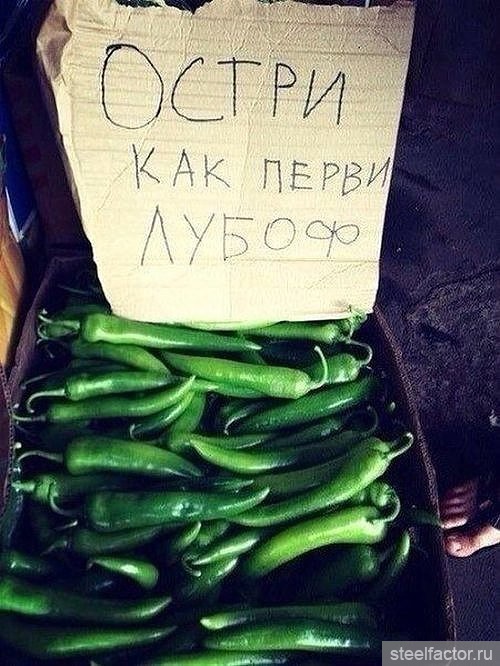 ОСТРИ
КАК ПЕРВИ
ЛУБОФ
steelfactor.ru